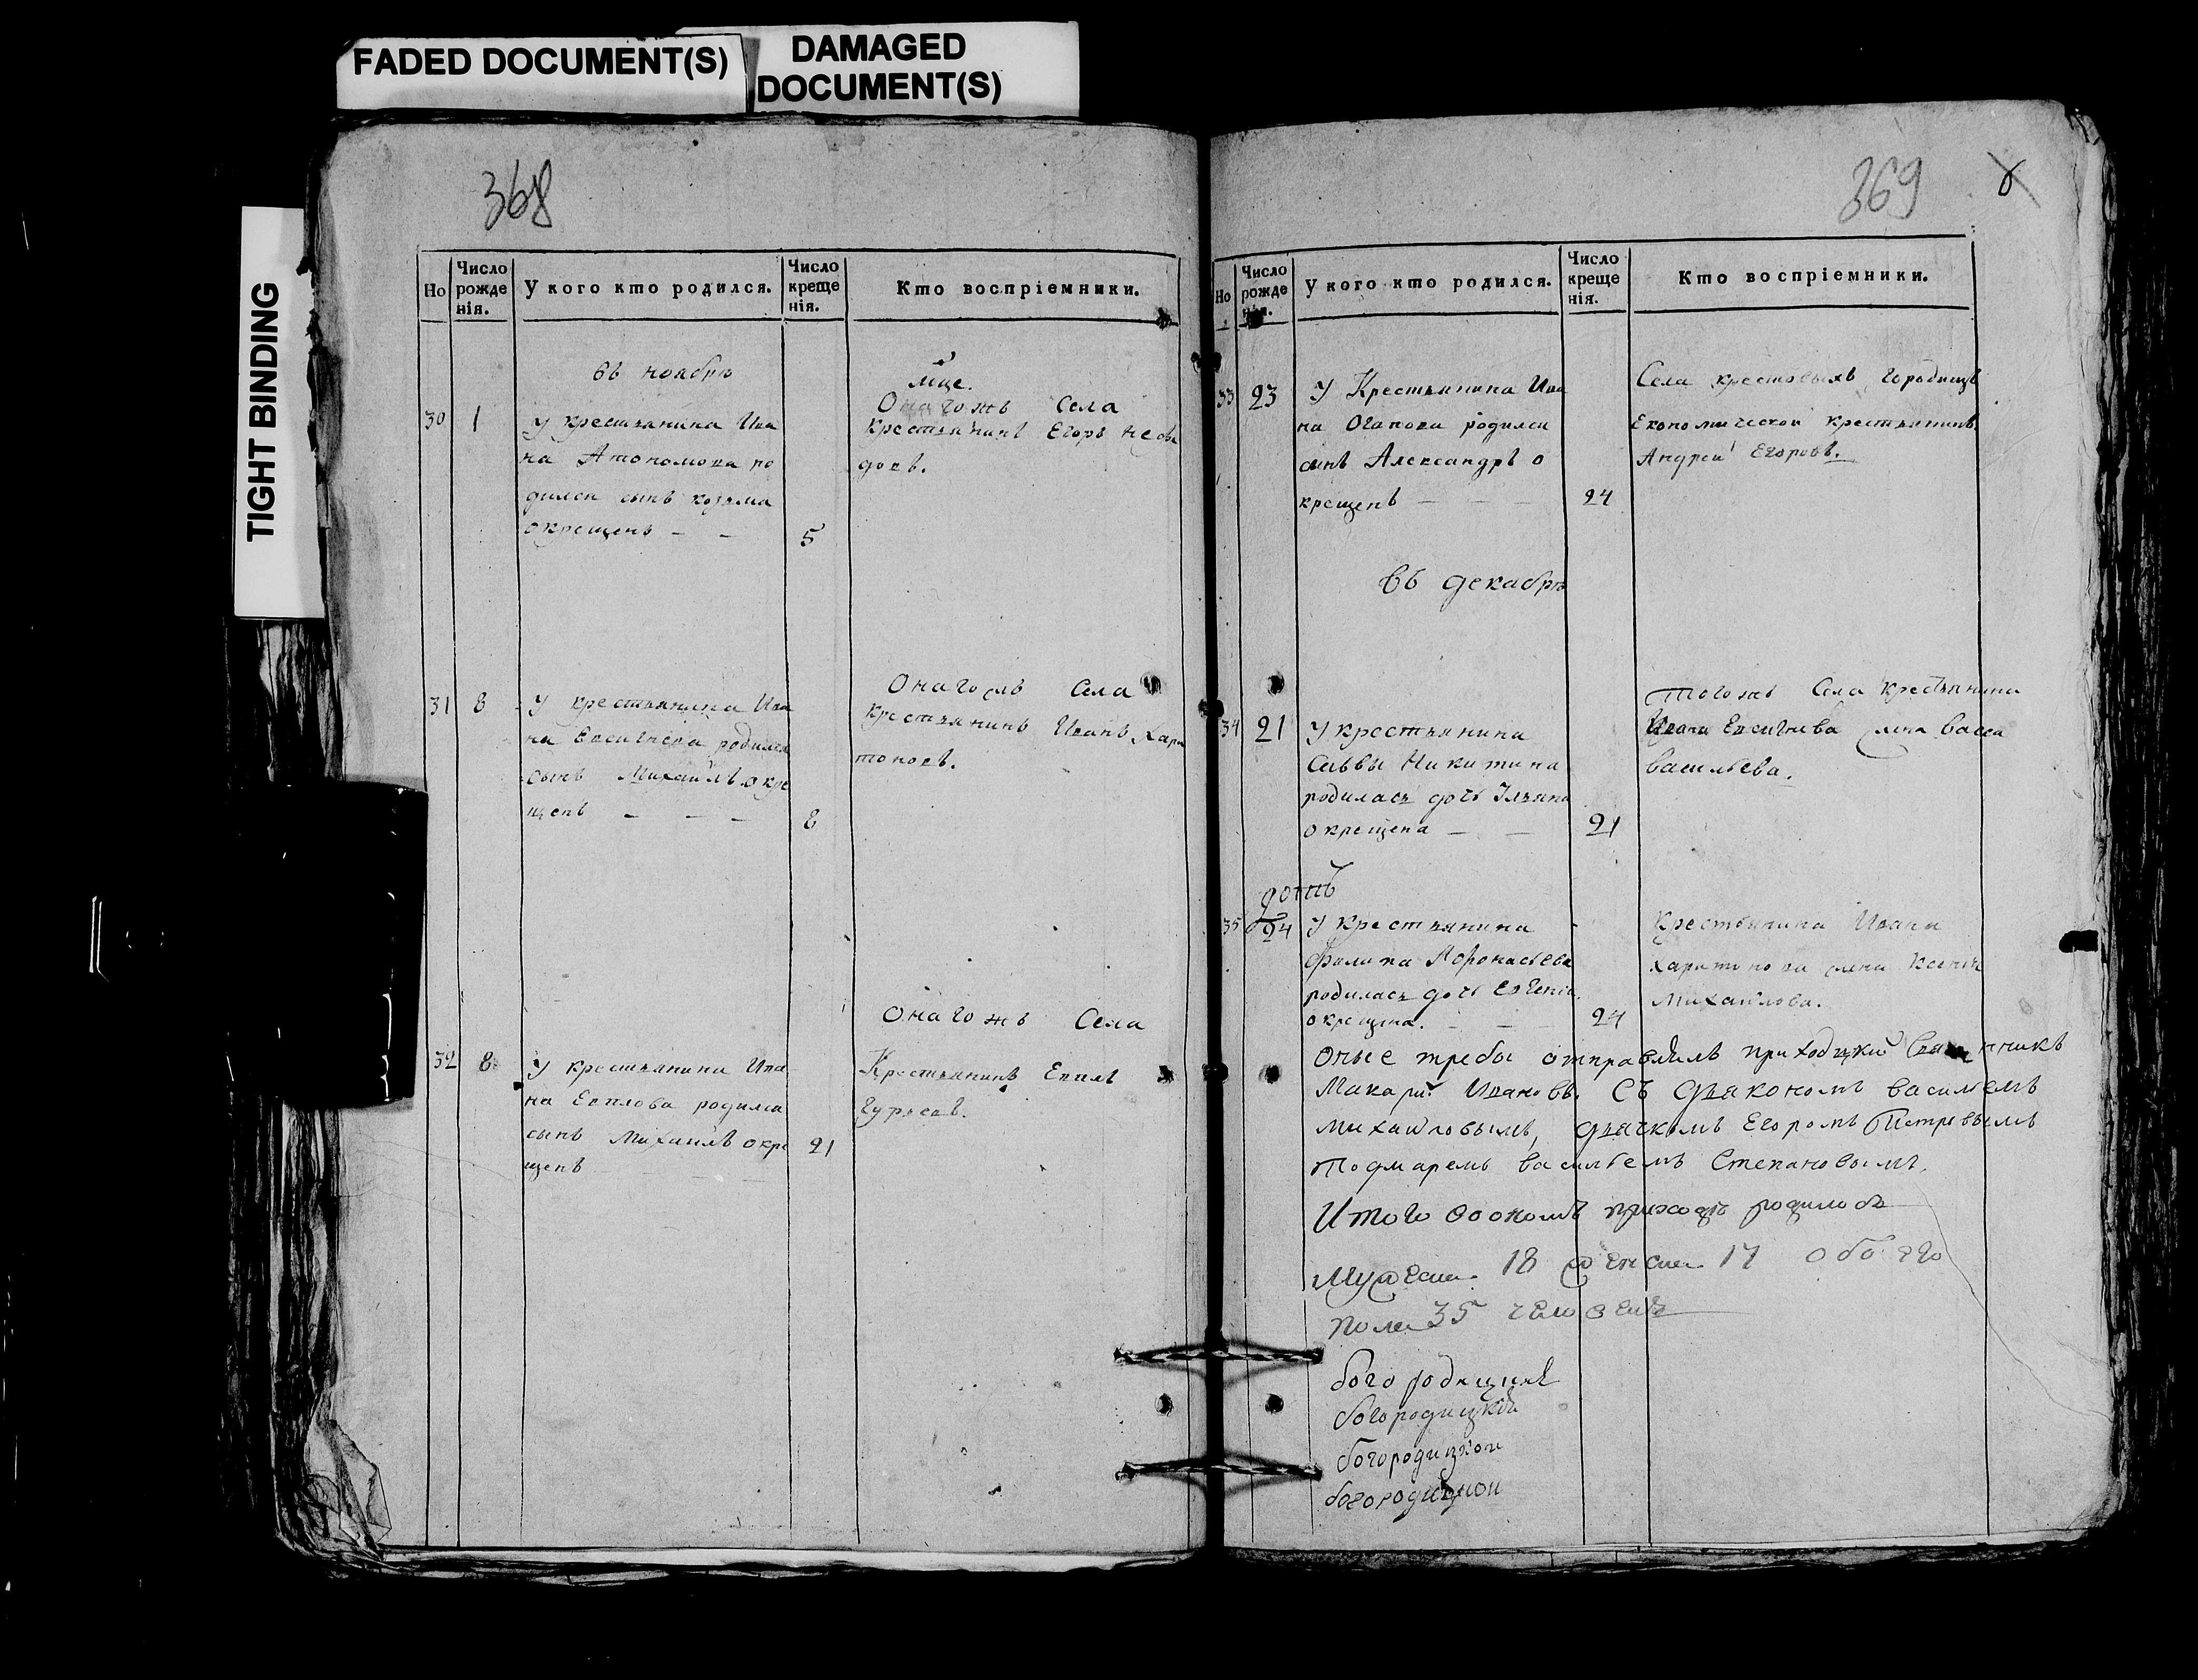 FADED DOCUMENT(S)
DAMAGED
DOCUMENT(S)
TIGHT BINDING
368
Но
Число рожде нія.
У кого кто родился.
Число креще нія.
Кто воспріемники.
въ ноябрѣ
мце.
30 1
У крестьянина Ива
на Атономова ро
дился сынъ козьма
окрещенъ - - 5
Онагожъ Села
крестьянинъ Егоръ
31 8
У крестьянина Ива
на Евсигнева родился
сынъ Михаилъ окре
щенъ - - - 8
Онагожъ Села
крестьянинъ Иванъ Хари
тоновъ.
32 8
У крестьянина Ива
на Евплова родился
сынъ Михаилъ окре
щенъ 21
Онагожъ Села
Крестьянинъ Евплъ
369
Но
Число рожде нія.
У кого кто родился.
Число креще нія.
Кто воспріемники.
33 23
У Крестьянина Ива
на Огапова родился
сынъ Александръ о
крещенъ - - - 24
Села крестовыхъ городищъ
Економической крестьянинъ
Андрей Егоровъ.
въ декабрѣ
34 21
У крестьянина
Саввы Никитина
родилась дочь Ульяна
окрещена - - 21
Тогожъ Села крестьянина
Ивана Евсигнева жена Васса
васильева.
35 24
У крестьянина
Филипа Афонасьева
родилась дочь Евгенія
окрещена. - - 24
Крестьянина Ивана
Харитонова жена Ксенія
Михаилова.
Оные требы отправлялъ приходцкий Священникъ
Макарий Ивановъ. Съ Дьякономъ василіемъ
михаиловымъ, дьячкомъ Егоромъ Петровымъ
Пономаремъ василіемъ Степановымъ.
Итого воономъ приходѣ родилось
Мужеска 18 женска 17 обоего
пола 35 человекъ
богородицкой
богородицкой
богородицкой